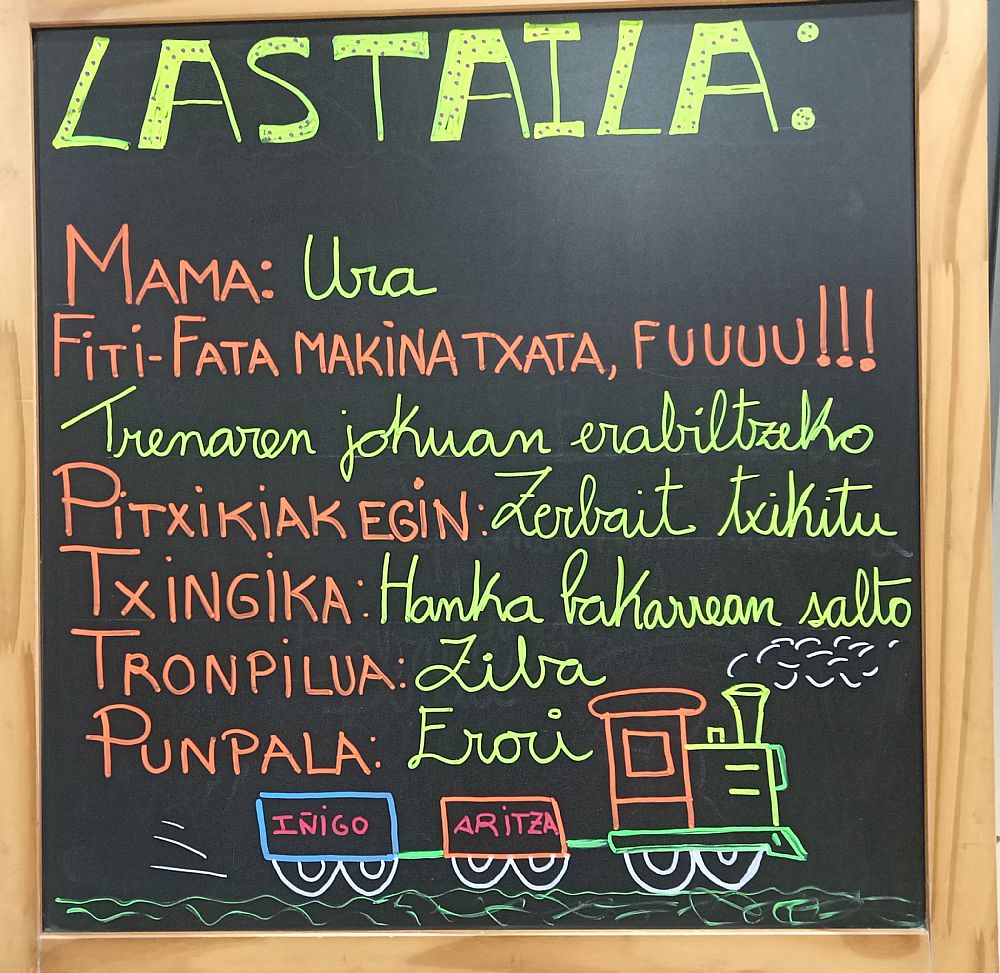 LASTAILA:
MAMA: Ura
FITI-FATA MAKINA TXATA, FUUUU!!!
Trenaren jokuan erabiltzeko
PITXIKIAK EGIN: Zerbait txikitu
TXINGIKA: Hanka bakarrean salto
TRONPILUA: Ziba
PUNPALA: Erori
IÑIGO ARITZA